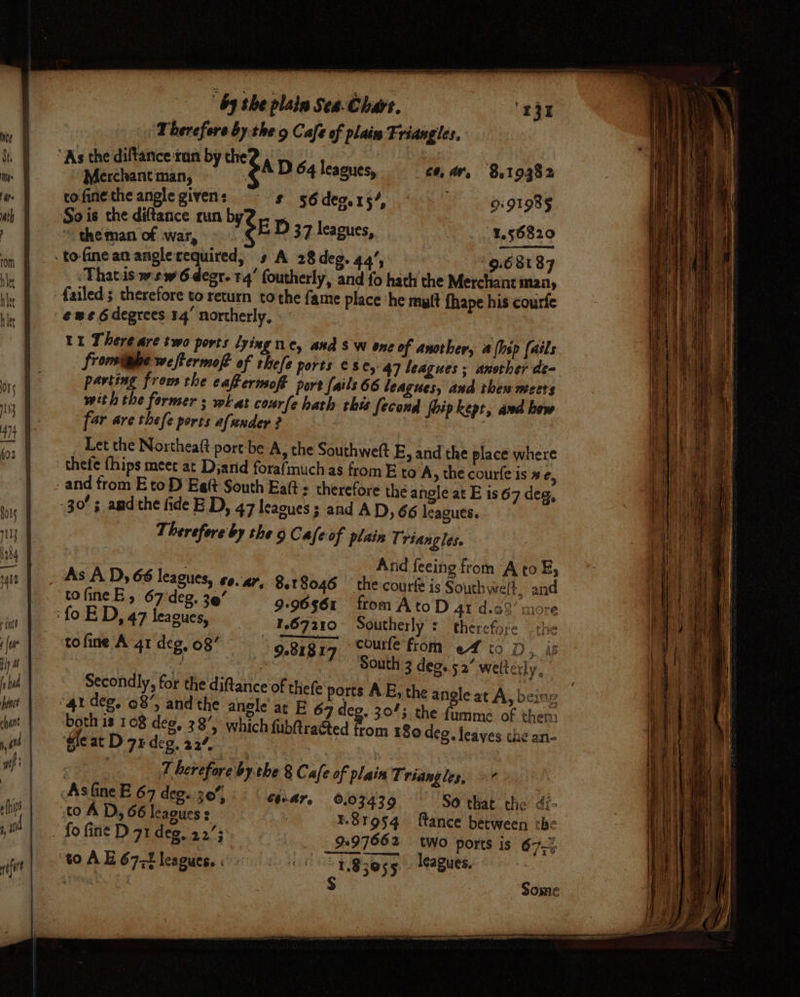 by the plain Sea-Chart. 131
Therefore by the 9 Case of plain Triangles.
As the distance run by the
Merchant man, } A D 64 leagues, co. ar. 8.19382
to sine the angle given: s 56 deg. 15′, 9.91985
So is the distance run by
the man of war, } E D 37 leagues, 1.56820
to sine an angle required, s A 28 deg. 44′, 9.68187
That is w s w 6 degr. 14′ southerly, and so hath the Merchant man,
sailed; therefore to return to the same place he must shape his course
e n e 6 degrees 14′ northerly.
11 There are two ports lying n e, and s w one of another, a ship sails
from the westermost of these ports e s e, 47 leagues; another de-
parting from the eastermost port sails 66 leagues, and then meets
with the former; what course hath this second ship kept, and how
far are these ports asunder?
Let the Northeast port be A, the Southwest E, and the place where
these ships meet at D; and forasmuch as from E to A, the course is n e,
and from E to D East South East; therefore the angle at E is 67 deg.
30′; and the side E D, 47 leagues; and A D, 66 leagues.
Therefore by the 9 Case of plain Triangles.
And seeing from A to E,
As A D, 66 leagues, co. ar. 8.18046 the course is Southwest, and
to sine E, 67 deg. 30′ 9.96561 from A to D 41 d. 08′ more
so E D, 47 leagues, 1.67210 Southerly: therefore the
to sine A 41 deg. 08′ 9.81817 course from A to D, is
South 3 deg. 52′ westerly.
Secondly, for the distance of these ports A E, the angle at A, being
41 deg. 08′, and the angle at E 67 deg. 30′; the summe of them
both is 108 deg. 38′, which substracted from 180 deg. leaves the an-
gle at D 71 deg. 22′.
Therefore by the 8 Case of plain Triangles.
As sine E 67 deg. 30′, co. ar. 0.03439 So that the di-
to A D, 66 leagues: 1.81954 stance between the
so sine D 71 deg. 22′; 9.97662 two ports is 67
to A E 67 leagues. 1.83055 leagues.
S Some